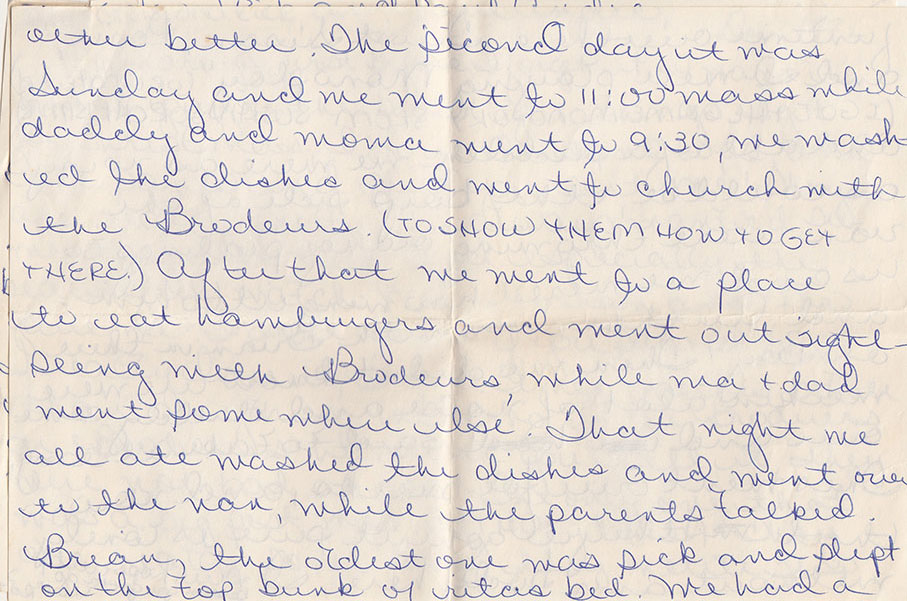 other better The second day it was
Sunday and we went to 11:00 mass while
daddy and moma went to 9:30, we wash-
ed the dishes and went to church with
the Brodeurs. (TO SHOW THEM HOW TO GET
THERE.) After that we went to a place
to eat hamburgers and went out sight-
seeing with Brodeurs while ma + dad
went some where else. That night we
all ate washed the dishes and went over
to the van, while the parents talked.
Brian, the oldest one was sick and slept
on the top bunk of ritas bed. We had a